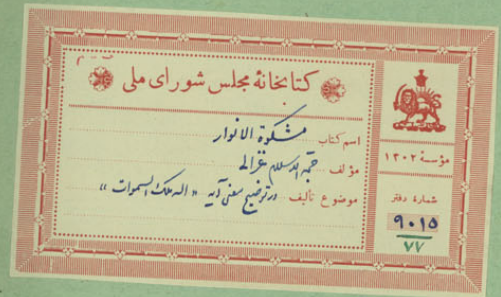 کتابخانهٔ مجلس شورای ملی
اسم کتاب مشکوة الانوار
مؤلف حجة الاسلام غزالی
موضوع تألیف در توضیح معنی آیه « الله ملک السموات »
مؤسسهٔ ۱۳۰۲
شمارهٔ دفتر
۹۰۱۵
۷۷